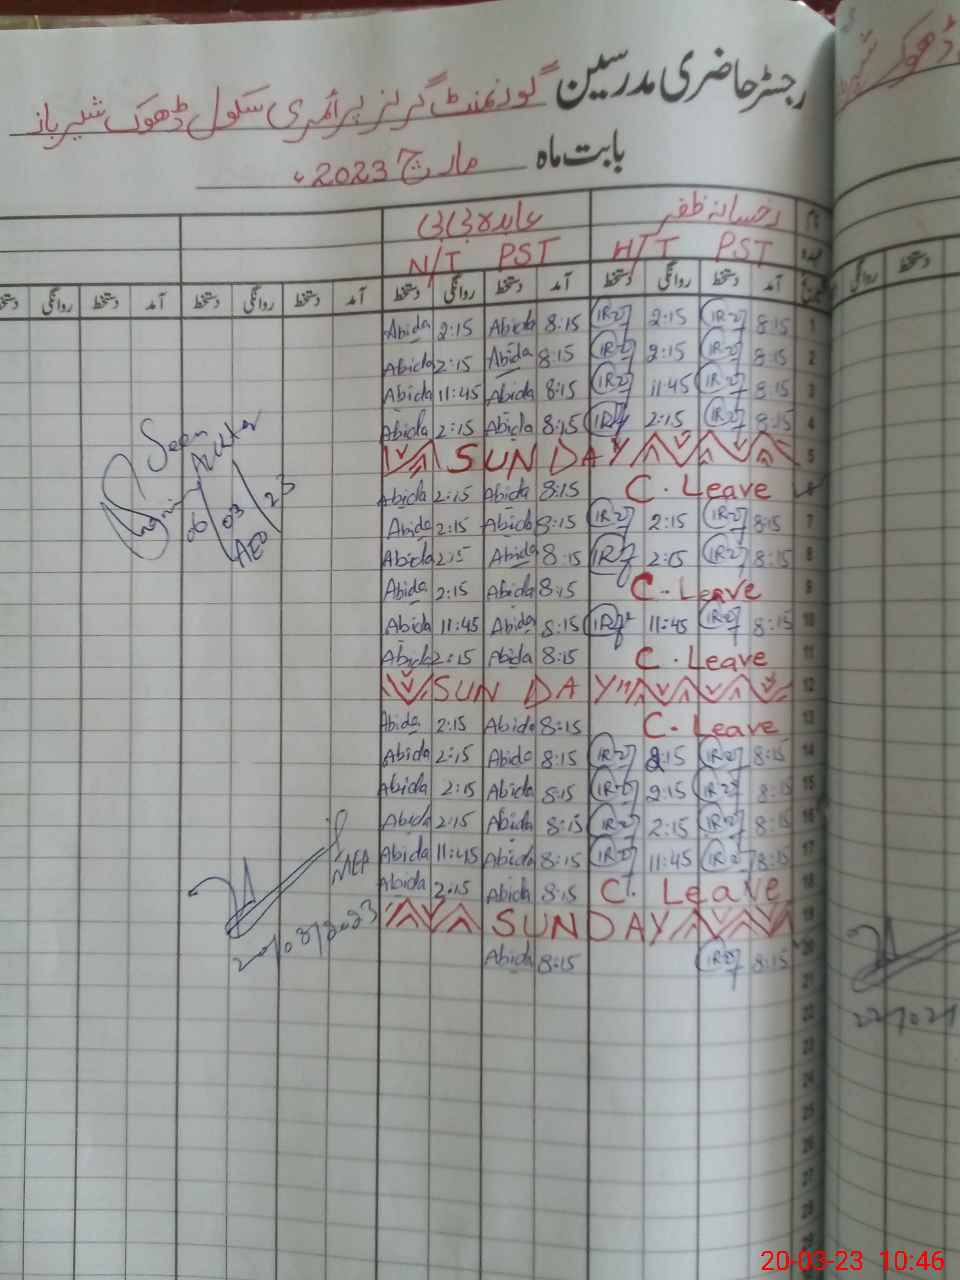 رجسٹر حاضری مدرسین گورنمنٹ گرلز پرائمری سکول ڈھوک شیرباز
بابت ماہ مارچ 2023ء
رخسانہ ظفر عابدہ
PST H/T PST N/T
آمد دستخط روانگی دستخط آمد دستخط روانگی دستخط آمد دستخط روانگی دستخط آمد دستخط روانگی
1 8:15 2:15 8:15 Abida 2:15 Abida
2 8:15 2:15 8:15 Abida 2:15 Abida
3 8:15 11:45 8:15 Abida 11:45 Abida
4 8:15 2:15 8:15 Abida 2:15 Abida
5 SUNDAY
6 C. Leave 8:15 Abida 2:15 Abida
7 8:15 2:15 8:15 Abida 2:15 Abida
8 8:15 2:15 8:15 Abida 2:15 Abida
9 C. Leave 8:15 Abida 2:15 Abida
10 8:15 11:45 8:15 Abida 11:45 Abida
11 C. Leave 8:15 Abida 2:15 Abida
12 SUNDAY
13 C. Leave 8:15 Abida 2:15 Abida
14 8:15 2:15 8:15 Abida 2:15 Abida
15 8:15 2:15 8:15 Abida 2:15 Abida
16 8:15 2:15 8:15 Abida 2:15 Abida
17 8:15 11:45 8:15 Abida 11:45 Abida
18 C. Leave 8:15 Abida 2:15 Abida
19 SUNDAY
20 8:15 8:15 Abida
21
22
23
24
25
26
27
28
Seen
06/03/23
AEO
20/03/2023
MEA
ڈھوک
روانگی دستخط
20-03-23 10:46